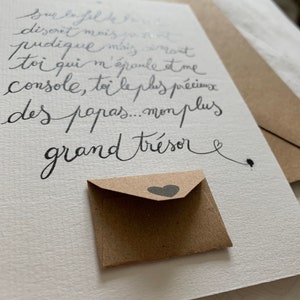 Sur le fil de
discret mais
pudique mais aimant
toi qui m'épaule et me
console, toi le plus précieux
des papas... mon plus
grand trésor